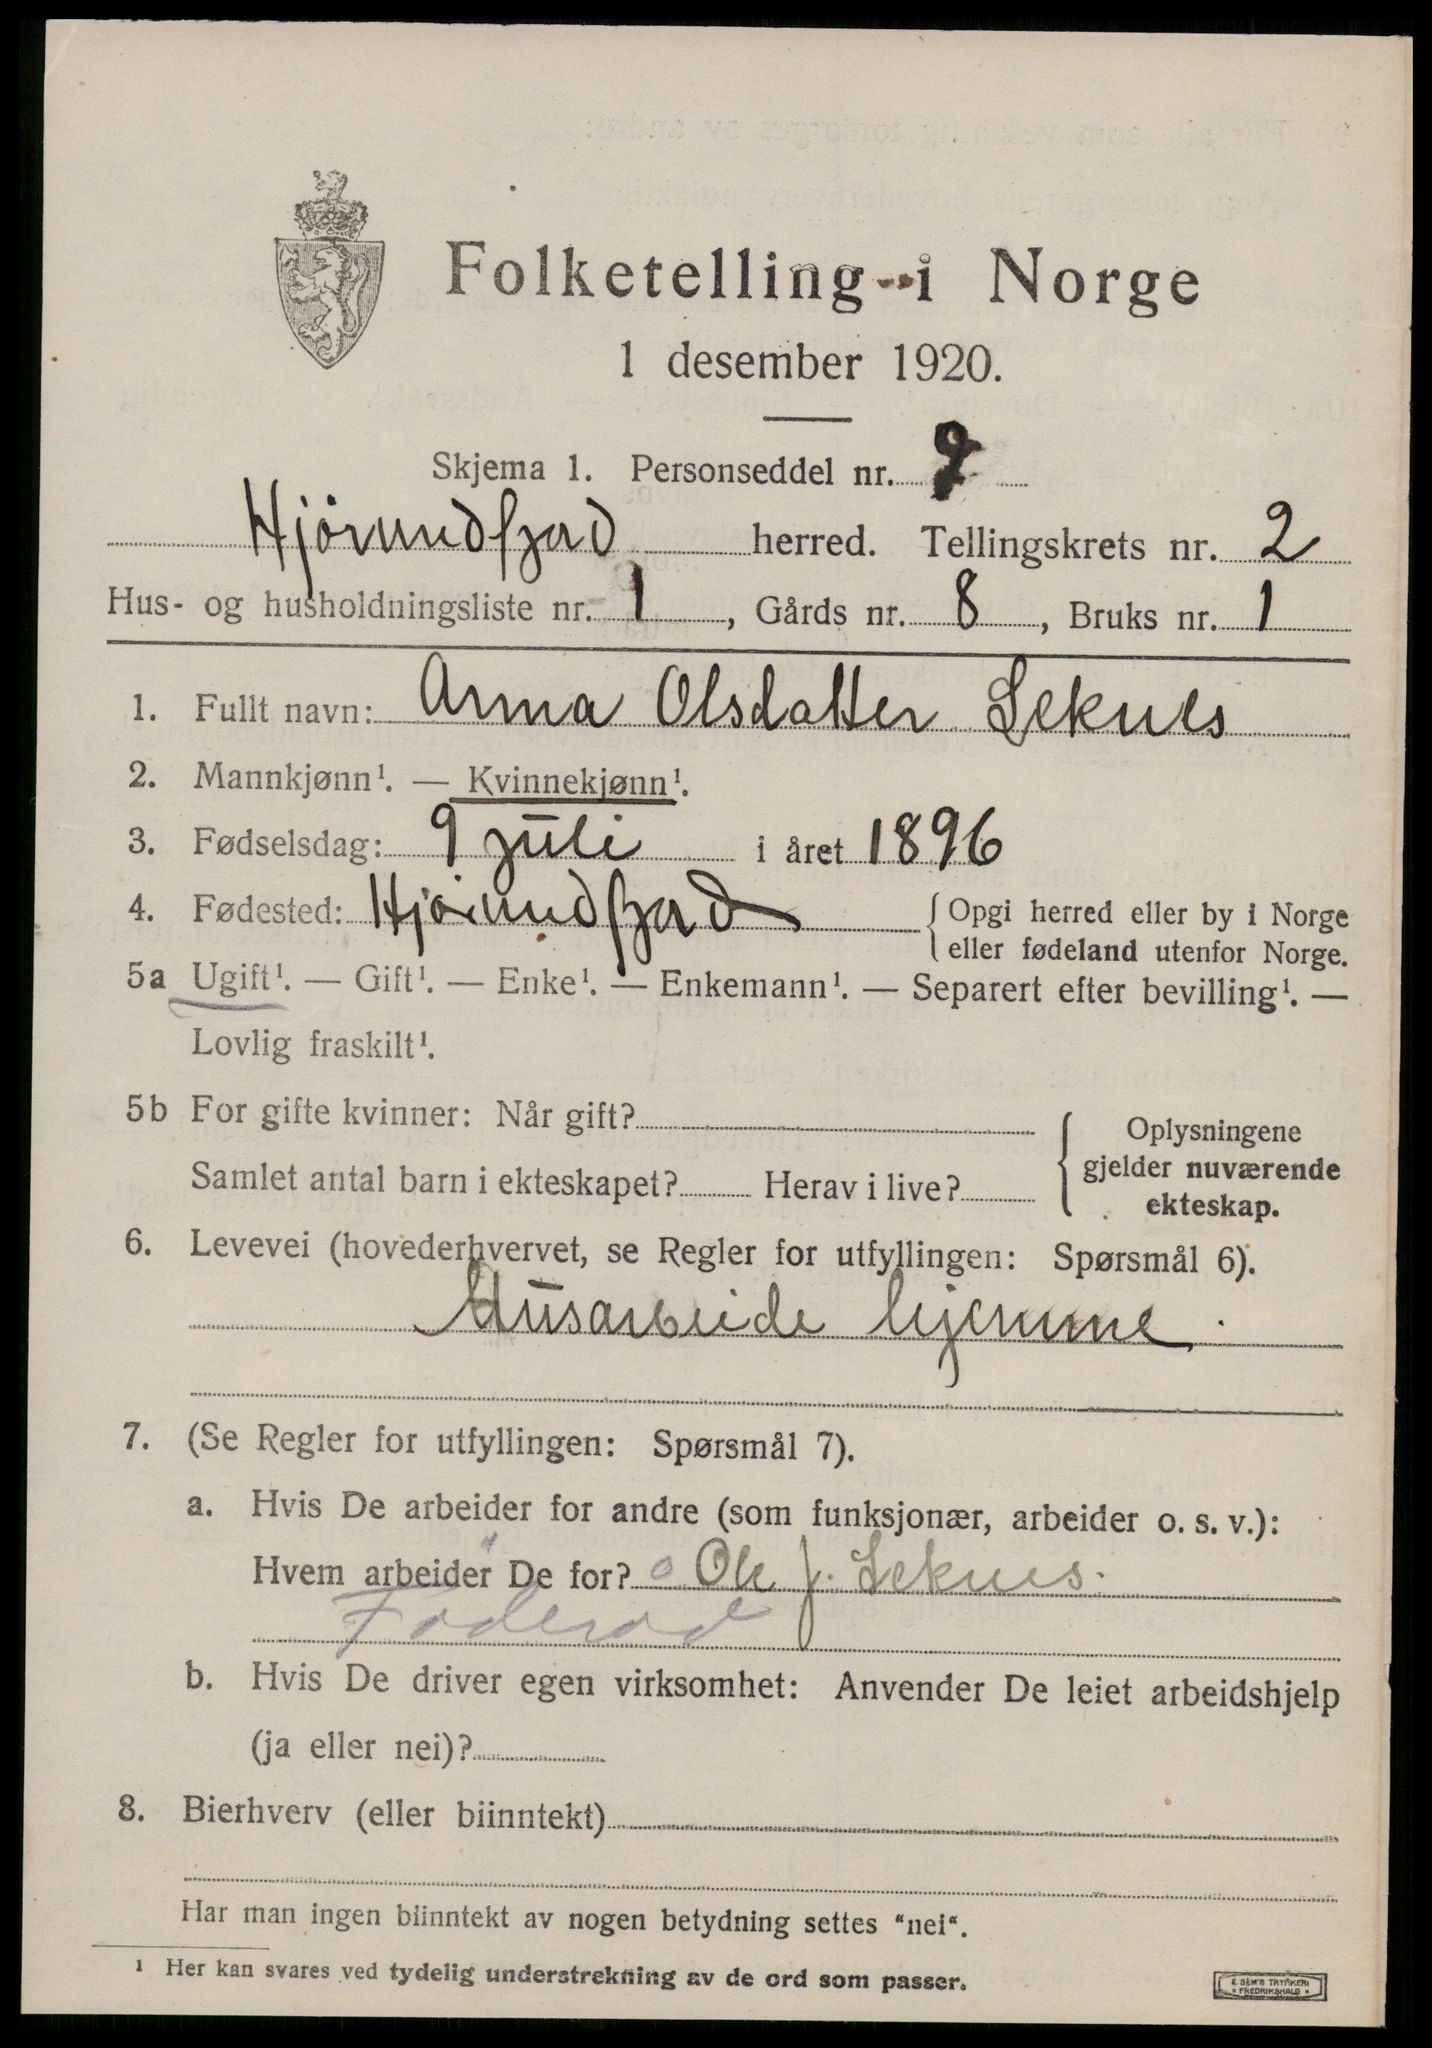 Folketelling i Norge
1 desember 1920.
Skjema 1. Personseddel nr.
Hjörundfjord herred. Tellingskrets nr. 2
Hus- og husholdningsliste nr. 1, Gårds nr. 8, Bruks nr. 1
1. Fullt navn: Anna Olsdatter Leknes
2. Mannkjønn¹. — Kvinnekjønn¹.
3. Fødselsdag: 9 juli i året 1896
4. Fødested: Hjörundfjord {Opgi herred eller by i Norge
eller fødeland utenfor Norge.
5a Ugift¹. — Gift¹. — Enke¹. — Enkemann¹. — Separert efter bevilling¹. —
Lovlig fraskilt¹.
5b For gifte kvinner: Når gift?
Samlet antal barn i ekteskapet? Herav i live?
Oplysningene
gjelder nuværende
ekteskap.
6. Levevei (hovederhvervet, se Regler for utfyllingen: Spørsmål 6).
Husarbeide hjemme.
7. (Se Regler for utfyllingen: Spørsmål 7).
a. Hvis De arbeider for andre (som funksjonær, arbeider o. s. v.):
Hvem arbeider De for? Ole J. Leknes.
Föderåd
b. Hvis De driver egen virksomhet: Anvender De leiet arbeidshjelp
(ja eller nei)?
8. Bierhverv (eller biinntekt)
Har man ingen biinntekt av nogen betydning settes “nei“.
¹ Her kan svares ved tydelig understrekning av de ord som passer.
E. SEM'S TRYKKERI
FREDRIKSHALD